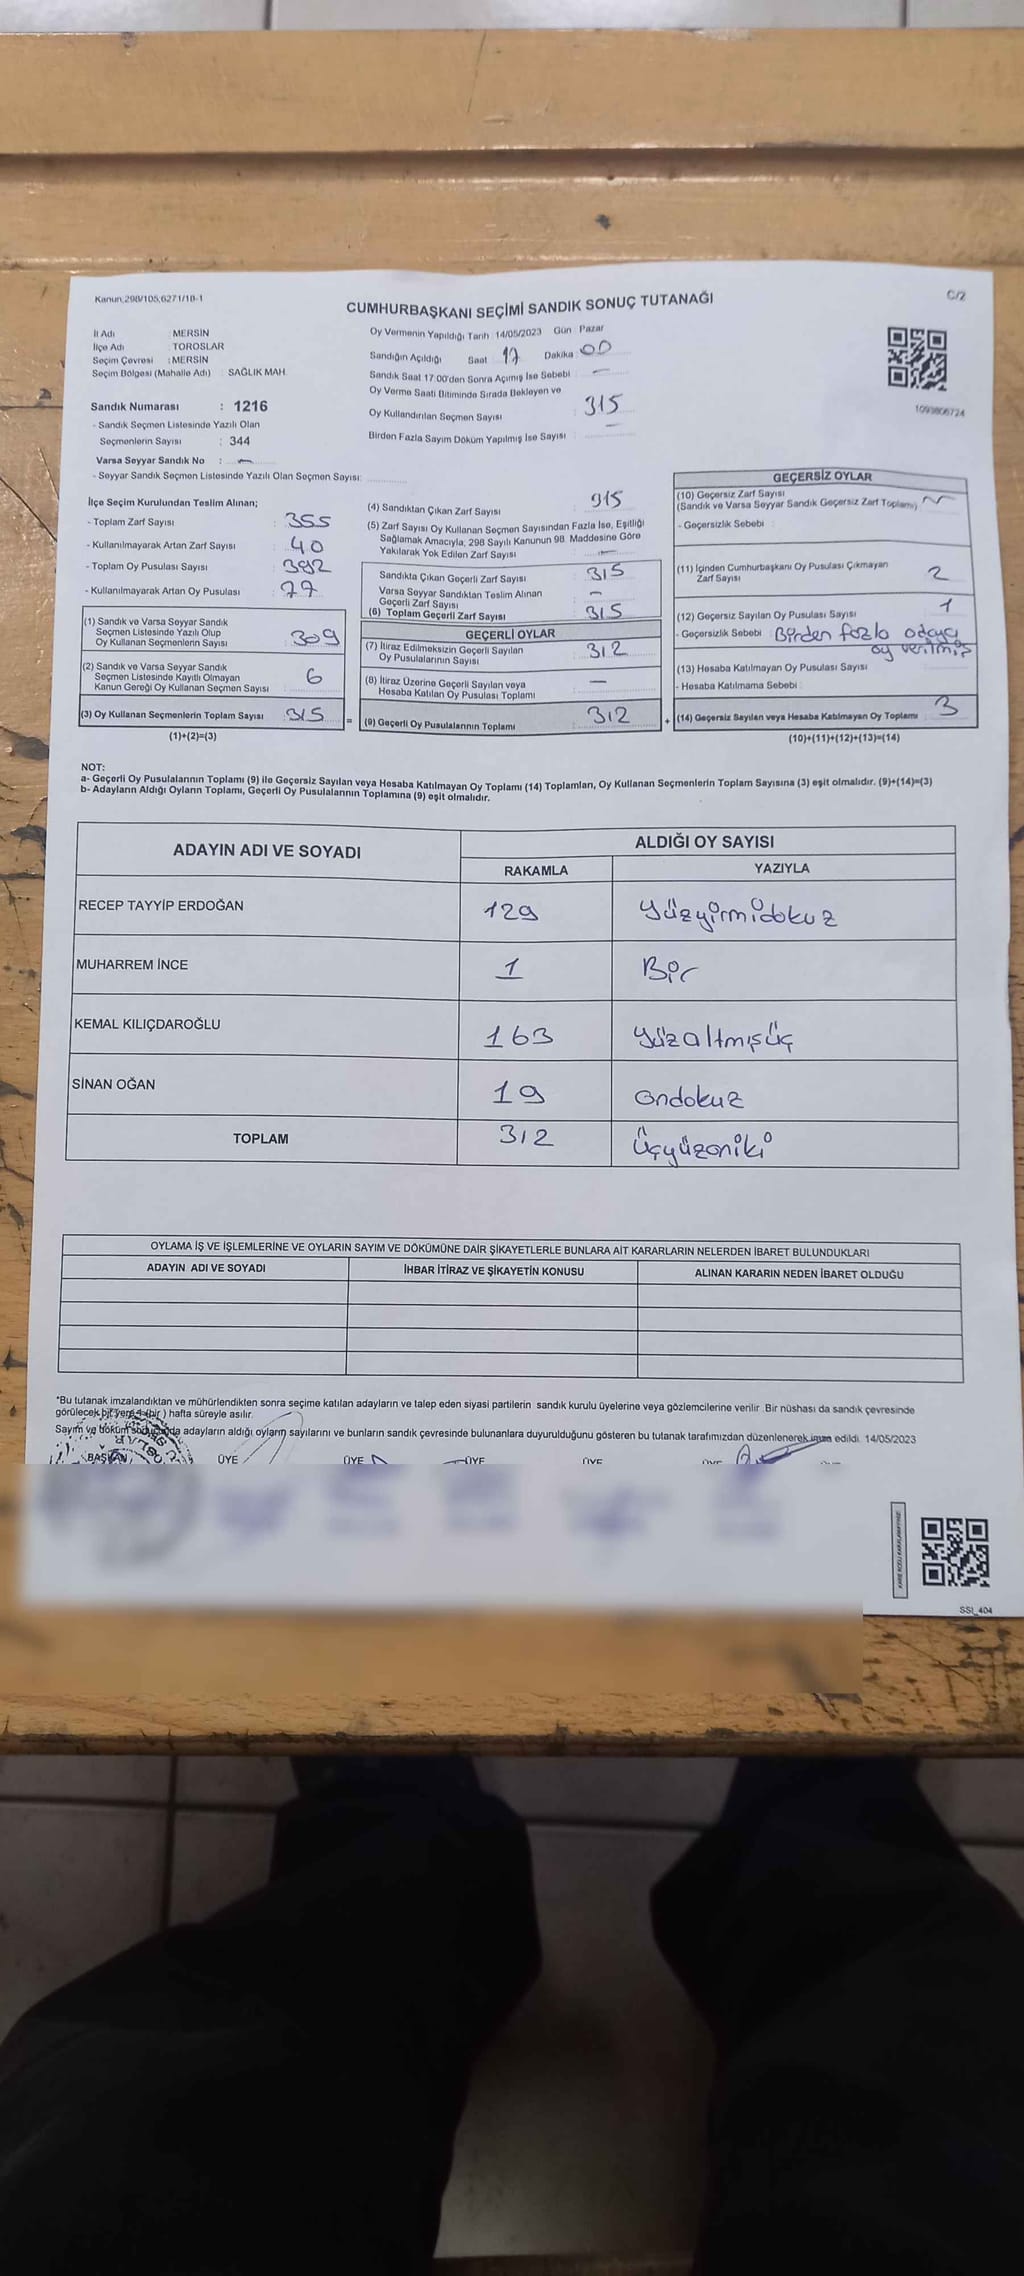 Kanun;298/105,6271/18-1
C/2
CUMHURBAŞKANI SEÇİMİ SANDIK SONUÇ TUTANAĞI
İl Adı : MERSİN
İlçe Adı : TOROSLAR
Seçim Çevresi : MERSİN
Seçim Bölgesi (Mahalle Adı) : SAĞLIK MAH.
Sandık Numarası : 1216
- Sandık Seçmen Listesinde Yazılı Olan
Seçmenlerin Sayısı : 344
Varsa Seyyar Sandık No : —
- Seyyar Sandık Seçmen Listesinde Yazılı Olan Seçmen Sayısı:
Oy Vermenin Yapıldığı Tarih :14/05/2023 Gün : Pazar
Sandığın Açıldığı Saat : 17 Dakika : 00
Sandık Saat 17:00'den Sonra Açımış İse Sebebi : —
Oy Verme Saati Bitiminde Sırada Bekleyen ve
Oy Kullandırılan Seçmen Sayısı : 315
Birden Fazla Sayım Döküm Yapılmış İse Sayısı : —
1093806724
İlçe Seçim Kurulundan Teslim Alınan;
- Toplam Zarf Sayısı : 355
- Kullanılmayarak Artan Zarf Sayısı : 40
- Toplam Oy Pusulası Sayısı : 392
- Kullanılmayarak Artan Oy Pusulası : 77
(1) Sandık ve Varsa Seyyar Sandık
Seçmen Listesinde Yazılı Olup
Oy Kullanan Seçmenlerin Sayısı 309
(2) Sandık ve Varsa Seyyar Sandık
Seçmen Listesinde Kayıtlı Olmayan
Kanun Gereği Oy Kullanan Seçmen Sayısı 6
(3) Oy Kullanan Seçmenlerin Toplam Sayısı 315
(1)+(2)=(3)
=
(4) Sandıktan Çıkan Zarf Sayısı : 315
(5) Zarf Sayısı Oy Kullanan Seçmen Sayısından Fazla İse, Eşitliği
Sağlamak Amacıyla, 298 Sayılı Kanunun 98. Maddesine Göre
Yakılarak Yok Edilen Zarf Sayısı : —
Sandıkta Çıkan Geçerli Zarf Sayısı : 315
Varsa Seyyar Sandıktan Teslim Alınan
Geçerli Zarf Sayısı —
(6) Toplam Geçerli Zarf Sayısı : 315
GEÇERLİ OYLAR
(7) İtiraz Edilmeksizin Geçerli Sayılan
Oy Pusulalarının Sayısı : 312
(8) İtiraz Üzerine Geçerli Sayılan veya
Hesaba Katılan Oy Pusulası Toplamı : —
(9) Geçerli Oy Pusulalarının Toplamı : 312
+
GEÇERSİZ OYLAR
(10) Geçersiz Zarf Sayısı
(Sandık ve Varsa Seyyar Sandık Geçersiz Zarf Toplamı)
- Geçersizlik Sebebi :
(11) İçinden Cumhurbaşkanı Oy Pusulası Çıkmayan
Zarf Sayısı 2
(12) Geçersiz Sayılan Oy Pusulası Sayısı 1
- Geçersizlik Sebebi : Birden fazla adaya
oy verilmiş
(13) Hesaba Katılmayan Oy Pusulası Sayısı
- Hesaba Katılmama Sebebi :
(14) Geçersiz Sayılan veya Hesaba Katılmayan Oy Toplamı 3
(10)+(11)+(12)+(13)=(14)
NOT:
a- Geçerli Oy Pusulalarının Toplamı (9) ile Geçersiz Sayılan veya Hesaba Katılmayan Oy Toplamı (14) Toplamları, Oy Kullanan Seçmenlerin Toplam Sayısına (3) eşit olmalıdır. (9)+(14)=(3)
b- Adayların Aldığı Oyların Toplamı, Geçerli Oy Pusulalarının Toplamına (9) eşit olmalıdır.
ADAYIN ADI VE SOYADI ALDIĞI OY SAYISI
RAKAMLA YAZIYLA
RECEP TAYYİP ERDOĞAN 129 Yüzyirmidokuz
MUHARREM İNCE 1 Bir
KEMAL KILIÇDAROĞLU 163 Yüzaltmışüç
SİNAN OĞAN 19 Ondokuz
TOPLAM 312 Üçyüzoniki
OYLAMA İŞ VE İŞLEMLERİNE VE OYLARIN SAYIM VE DÖKÜMÜNE DAİR ŞİKAYETLERLE BUNLARA AİT KARARLARIN NELERDEN İBARET BULUNDUKLARI
ADAYIN ADI VE SOYADI İHBAR İTİRAZ VE ŞİKAYETİN KONUSU ALINAN KARARIN NEDEN İBARET OLDUĞU
*Bu tutanak imzalandıktan ve mühürlendikten sonra seçime katılan adayların ve talep eden siyasi partilerin sandık kurulu üyelerine veya gözlemcilerine verilir. Bir nüshası da sandık çevresinde
görülecek bir yere 1 (bir ) hafta süreyle asılır.
Sayım ve döküm sonucunda adayların aldığı oyların sayılarını ve bunların sandık çevresinde bulunanlara duyurulduğunu gösteren bu tutanak tarafımızdan düzenlenerek imza edildi. 14/05/2023
BAŞKAN ÜYE ÜYE ÜYE ÜYE
SSI_404